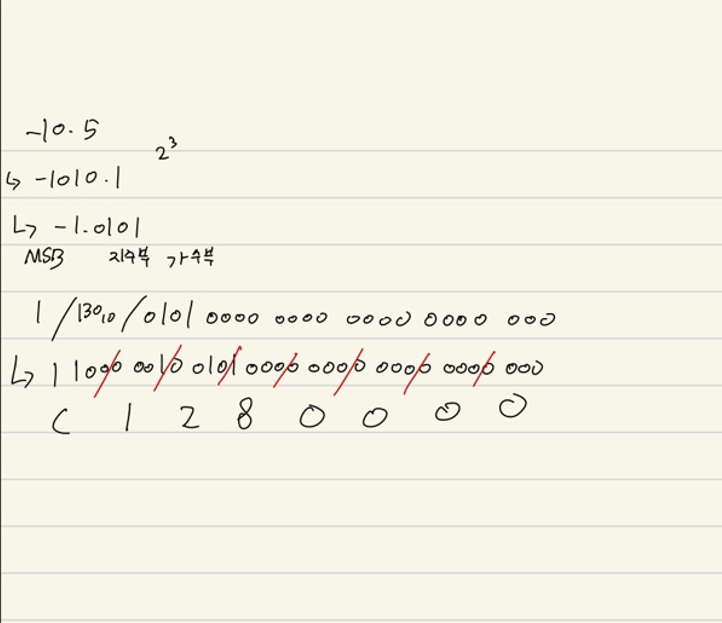 -10.5
2³
↳ -1010.1
↳ -1.0101
MSB 지수부 가수부
1 / 130₁₀ / 0101 0000 0000 0000 0000 000
↳ 1 1000 0010 0101 0000 0000 0000 0000 000
C 1 2 8 0 0 0 0